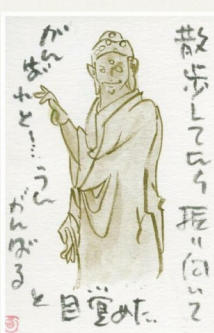 散歩してたら振り向いて
がんばれと…うん
がんばると
目覚めた